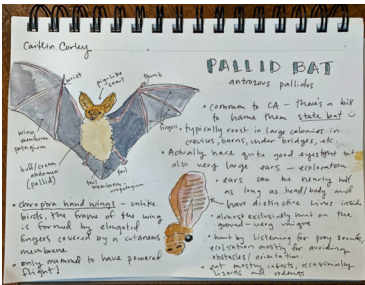 Caitlin Corley
PALLID BAT
antrozous pallidus
wrist
pig-like snout
thumb
wing membrane
patagium
fingers
buff/cream
abdomen
(pallid)
tail
tail
membrane -
uropatagium
• common to CA - there's a bill
to name them state bat
• typically roost in large colonies in
crevices, barns, under bridges, etc.
• Actually have quite good eyesight but
also very large ears - echolocation
• ears can be nearly half
as long as head/body and
have distinctive lines inside
• almost exclusively hunt on the
ground - very unique
• hunt by listening for prey sounds,
echolocation mostly for avoiding
obstacles/orientation.
• eat mostly insects, occasionally
lizards and rodents
• chiroptera hand wings - unlike
birds, the frame of the wing
is formed by elongated
fingers covered by a cutaneous
membrane
• only mammal to have powered
flight!